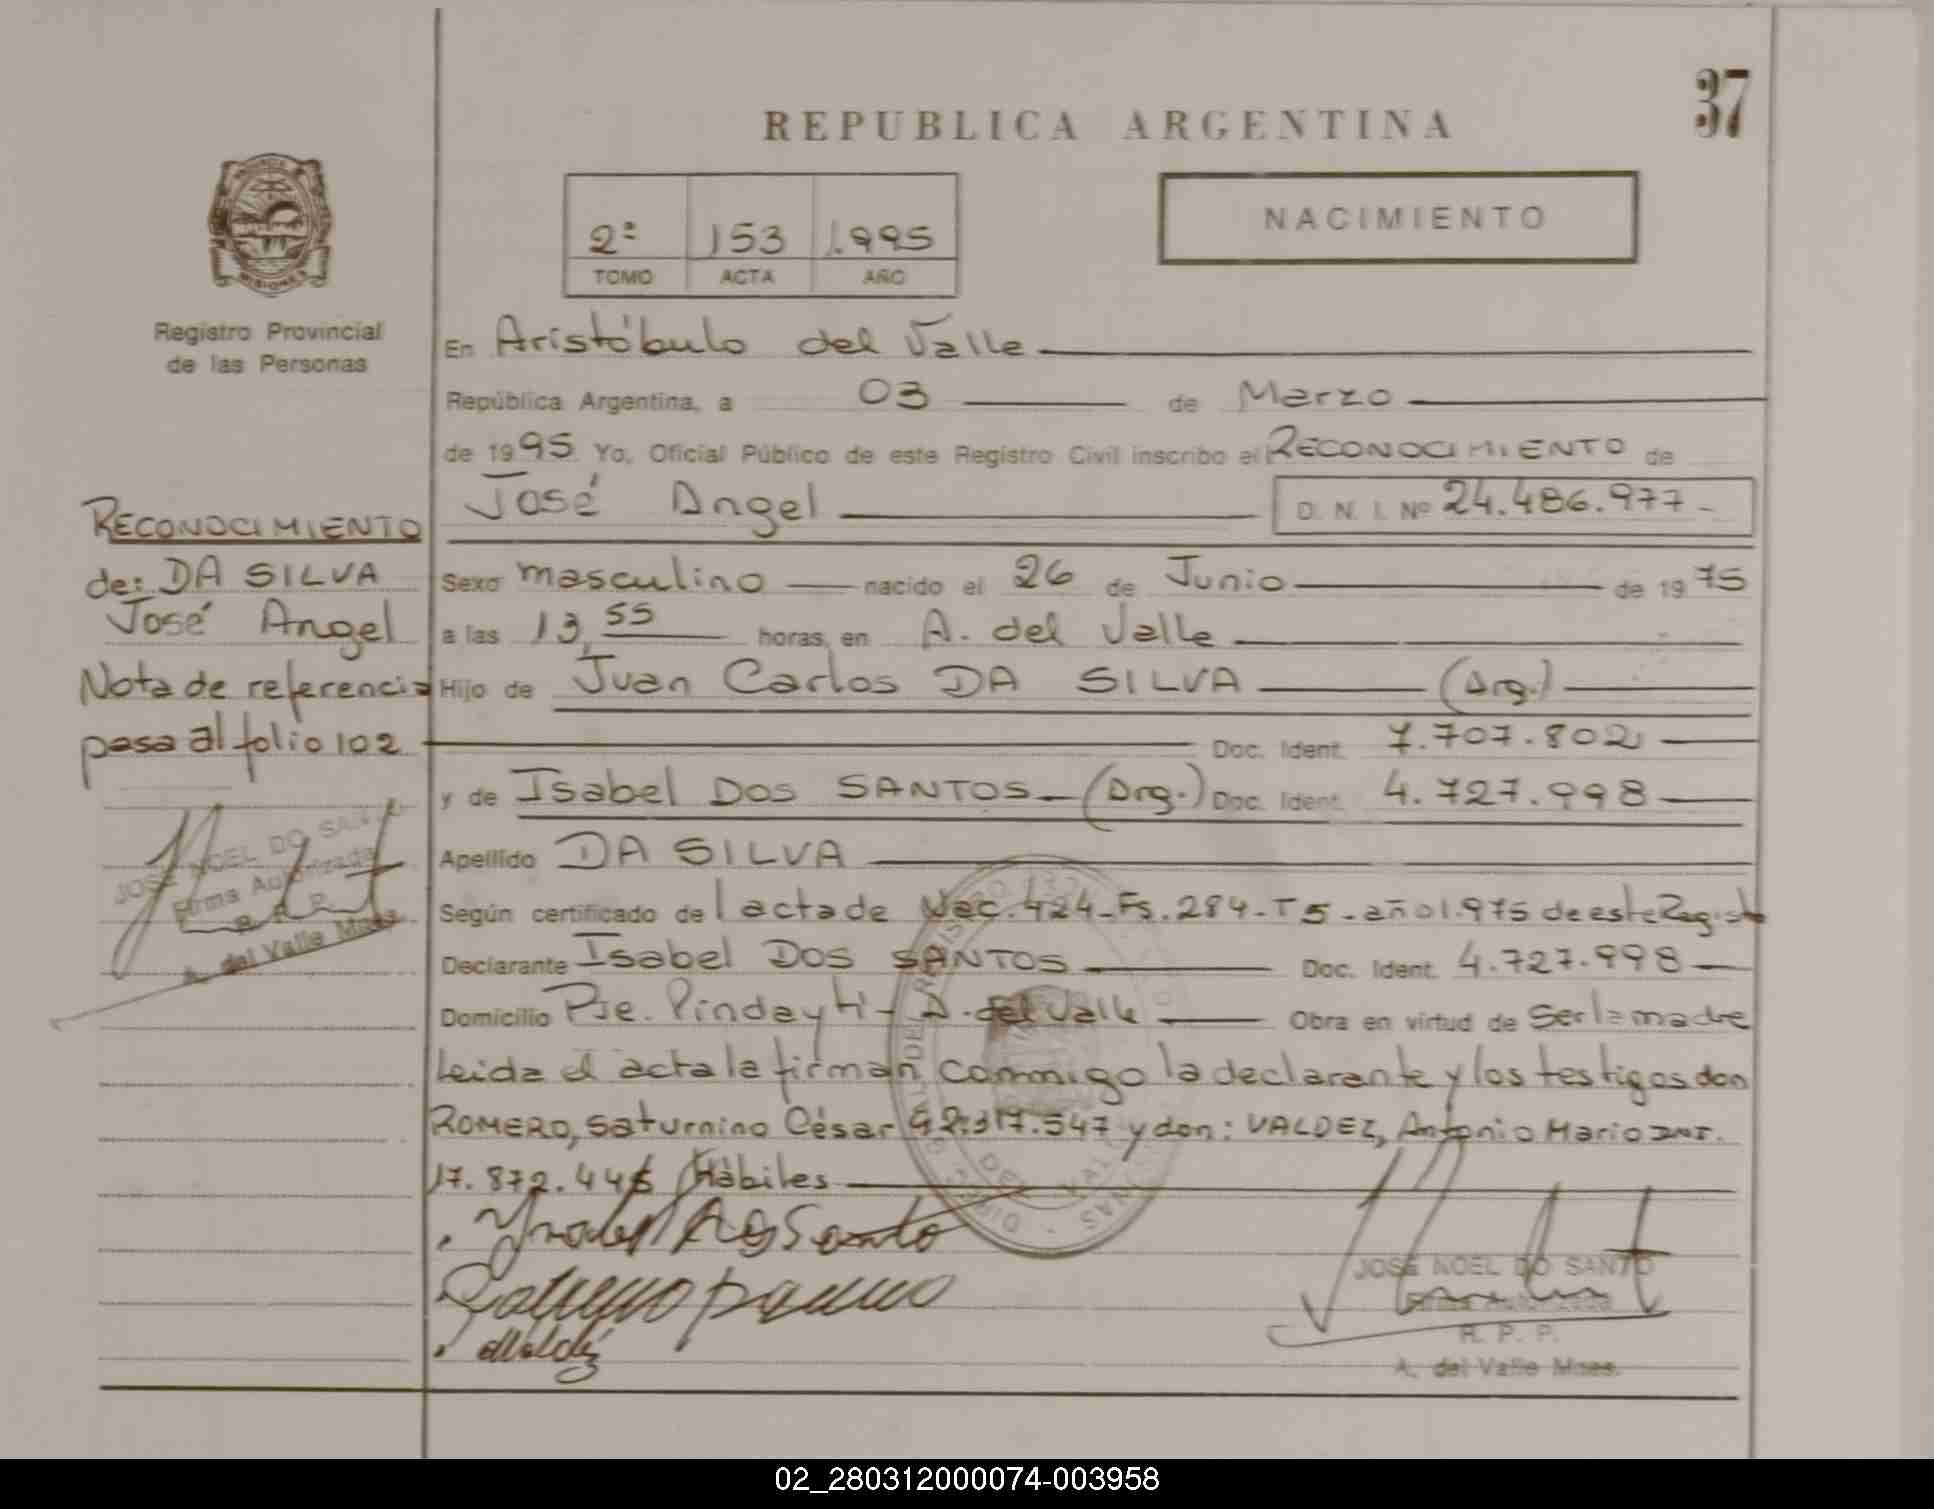 37
REPUBLICA ARGENTINA
NACIMIENTO
2º 153 1.995
TOMO ACTA AÑO
Registro Provincial
de las Personas
En Aristóbulo del Valle
República Argentina, a 03 de Marzo
de 1995 Yo, Oficial Público de este Registro Civil inscribo el RECONOCIMIENTO de
José Angel D. N. I. Nº 24.486.977-
RECONOCIMIENTO
de: DA SILVA
José Angel
Nota de referencia
pasa al folio 102
Sexo masculino nacido el 26 de Junio de 1975
a las 13,55 horas, en A. del Valle
Hijo de Juan Carlos DA SILVA (Arg.)
Doc. Ident. 7.707.802
y de Isabel DOS SANTOS - (Arg.) Doc. Ident. 4.727.998
Apellido DA SILVA
JOSE NOEL DO SANTO
Firma Autorizada
R. P. P.
A. del Valle Mnes.
Según certificado de l acta de Nac. 424 - Fs. 284 - T 5 - año 1.975 de este Registro
Declarante Isabel DOS SANTOS Doc. Ident. 4.727.998
Domicilio Pje. Pindayti - A. del Valle Obra en virtud de Ser la madre
Leida el acta la firman conmigo la declarante y los testigos don
ROMERO, Saturnino César 42.317.547 y don: VALDEZ, Antonio Mario DNI.
17.872.446 Hábiles
JOSE NOEL DO SANTO
Firma Autorizada
R. P. P.
A. del Valle Mnes.
02_280312000074-003958